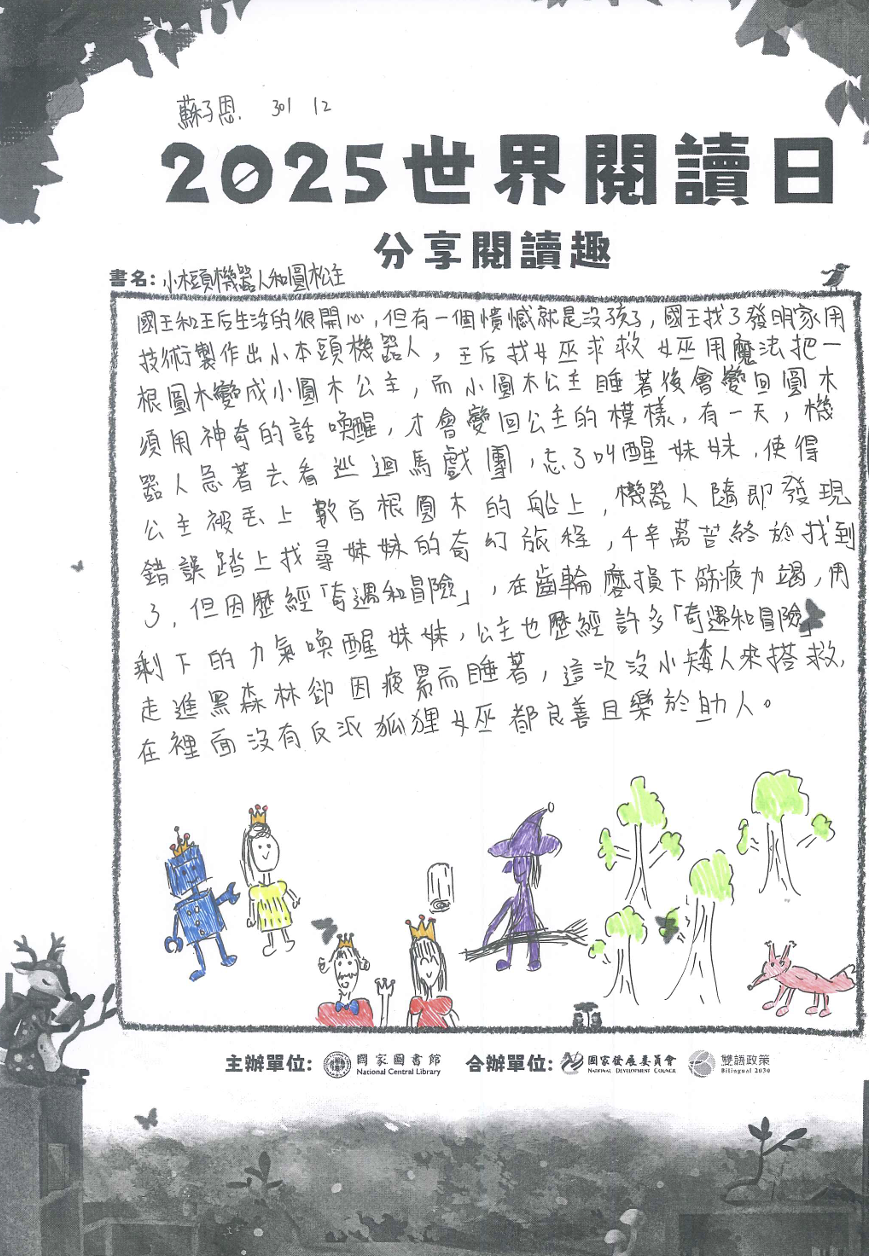 蘇子恩 301 12
2025世界閱讀日
分享閱讀趣
書名：小木頭機器人和圓松主
國王和王后生活的很開心，但有一個憤憾就是沒孩子，國王找了發明家用
技術製作出小本頭機器人，王后找女巫求救 女巫用魔法把一
根圓木變成小圓木公主，而小圓木公主睡著後會變回圓木
須用神奇的話喚醒，才會變回公主的模樣，有一天，機
器人急著去看巡迴馬戲團，忘了叫醒妹妹，使得
公主被丟上數百根圓木的船上，機器人隨即發現
錯誤踏上找尋妹妹的奇幻旅程，千辛萬苦終於找到
了，但因歷經「奇遇和冒險」，在齒輪磨損下筋疲力竭，用
剩下的力氣喚醒妹妹，公主也歷經許多「奇遇和冒險」
走進黑森林卻因疲累而睡著，這次沒小矮人來搭救，
在裡面沒有反派狐狸女巫都良善且樂於助人。
主辦單位： 國家圖書館 National Central Library 合辦單位： 國家發展委員會 National Development Council 雙語政策 Bilingual 2030